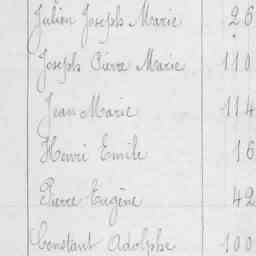 Julien Joseph Marie 26
Joseph Pierre Marie 110
Jean Marie 114
Henri Emile 16
Pierre Eugène 42
Constant Adolphe 100